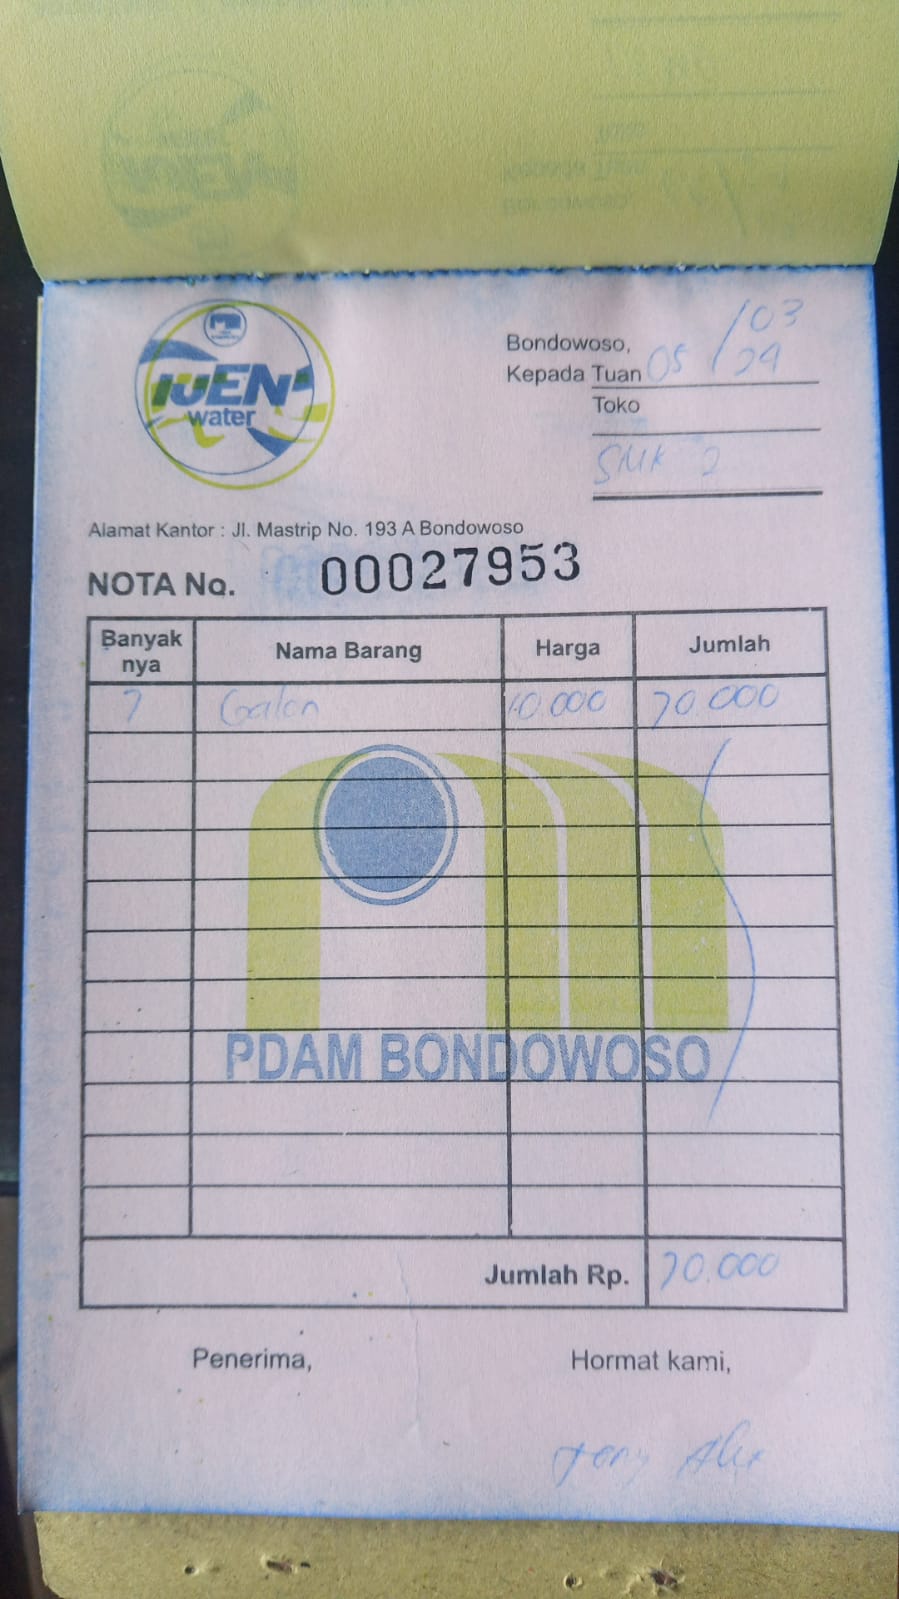 IJEN
water
Bondowoso, 05/03
Kepada Tuan 24
Toko
SMK 2
Alamat Kantor : Jl. Mastrip No. 193 A Bondowoso
NOTA No. 00027953
Banyak nya Nama Barang Harga Jumlah
7 Galon 10.000 70.000
PDAM BONDOWOSO
Jumlah Rp. 70.000
Penerima, Hormat kami,